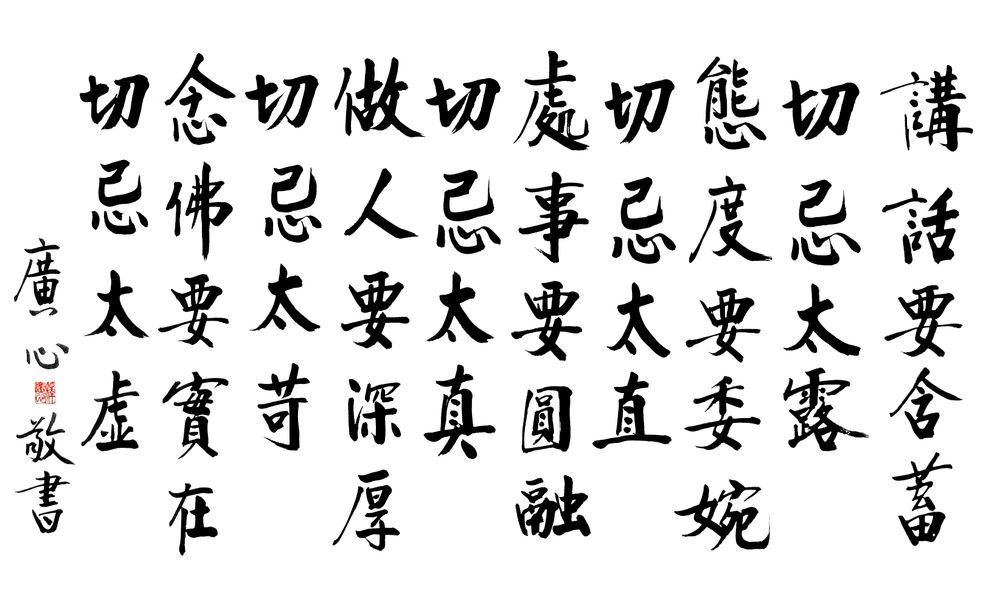 講話要含蓄
切忌太露
態度要委婉
切忌太直
處事要圓融
切忌太真
做人要深厚
切忌太苛
念佛要實在
切忌太虛
廣心敬書